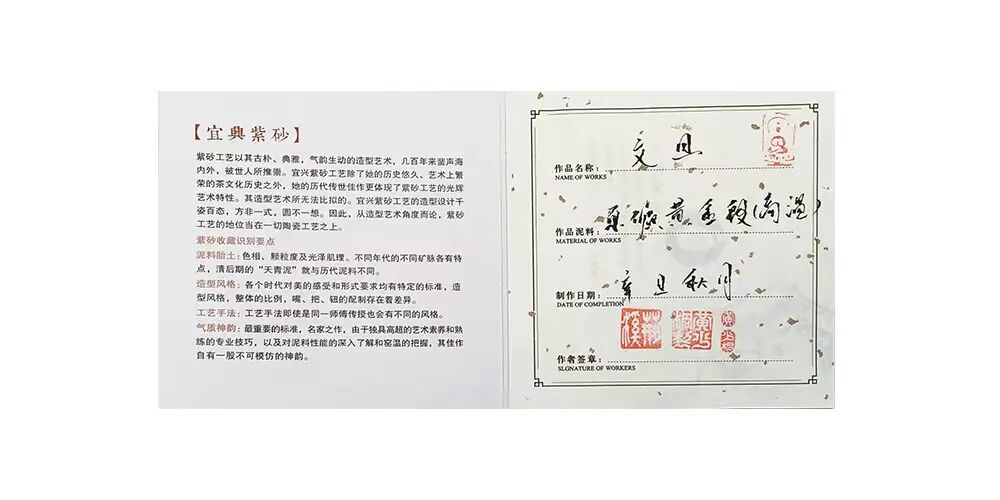 【宜興紫砂】
紫砂工艺以其古朴、典雅，气韵生动的造型艺术，几百年来蜚声海
内外，被世人所推崇。宜兴紫砂工艺除了她的历史悠久、艺术上繁
荣的茶文化历史之外，她的历代传世佳作更体现了紫砂工艺的光辉
艺术特性。其造型艺术所无法比拟的。宜兴紫砂工艺的造型设计千
姿百态，方非一式，圆不一想。因此，从造型艺术角度而论，紫砂
工艺的地位当在一切陶瓷工艺之上。
紫砂收藏识别要点
泥料胎土：色相、颗粒度及光泽肌理。不同年代的不同矿脉各有特
点，清后期的“天青泥”就与历代泥料不同。
造型风格：各个时代对美的感受和形式要求均有特定的标准，造
型风格，整体的比例，嘴、把、钮的配制存在着差异。
工艺手法：工艺手法即使是同一师傅传授也会有不同的风格。
气质神韵：最重要的标准，名家之作，由于独具高超的艺术素养和熟
练的专业技巧，以及对泥料性能的深入了解和窑温的把握，其佳作
自有一股不可模仿的神韵。
作品名称：文旦
NAME OF WORKS
作品泥料：原礦黄金段(高温)
MATERIAL OF WORKS
制作日期：辛丑秋月
DATE OF COMPLETION
作者签章：
SLGNATURE OF WORKERS